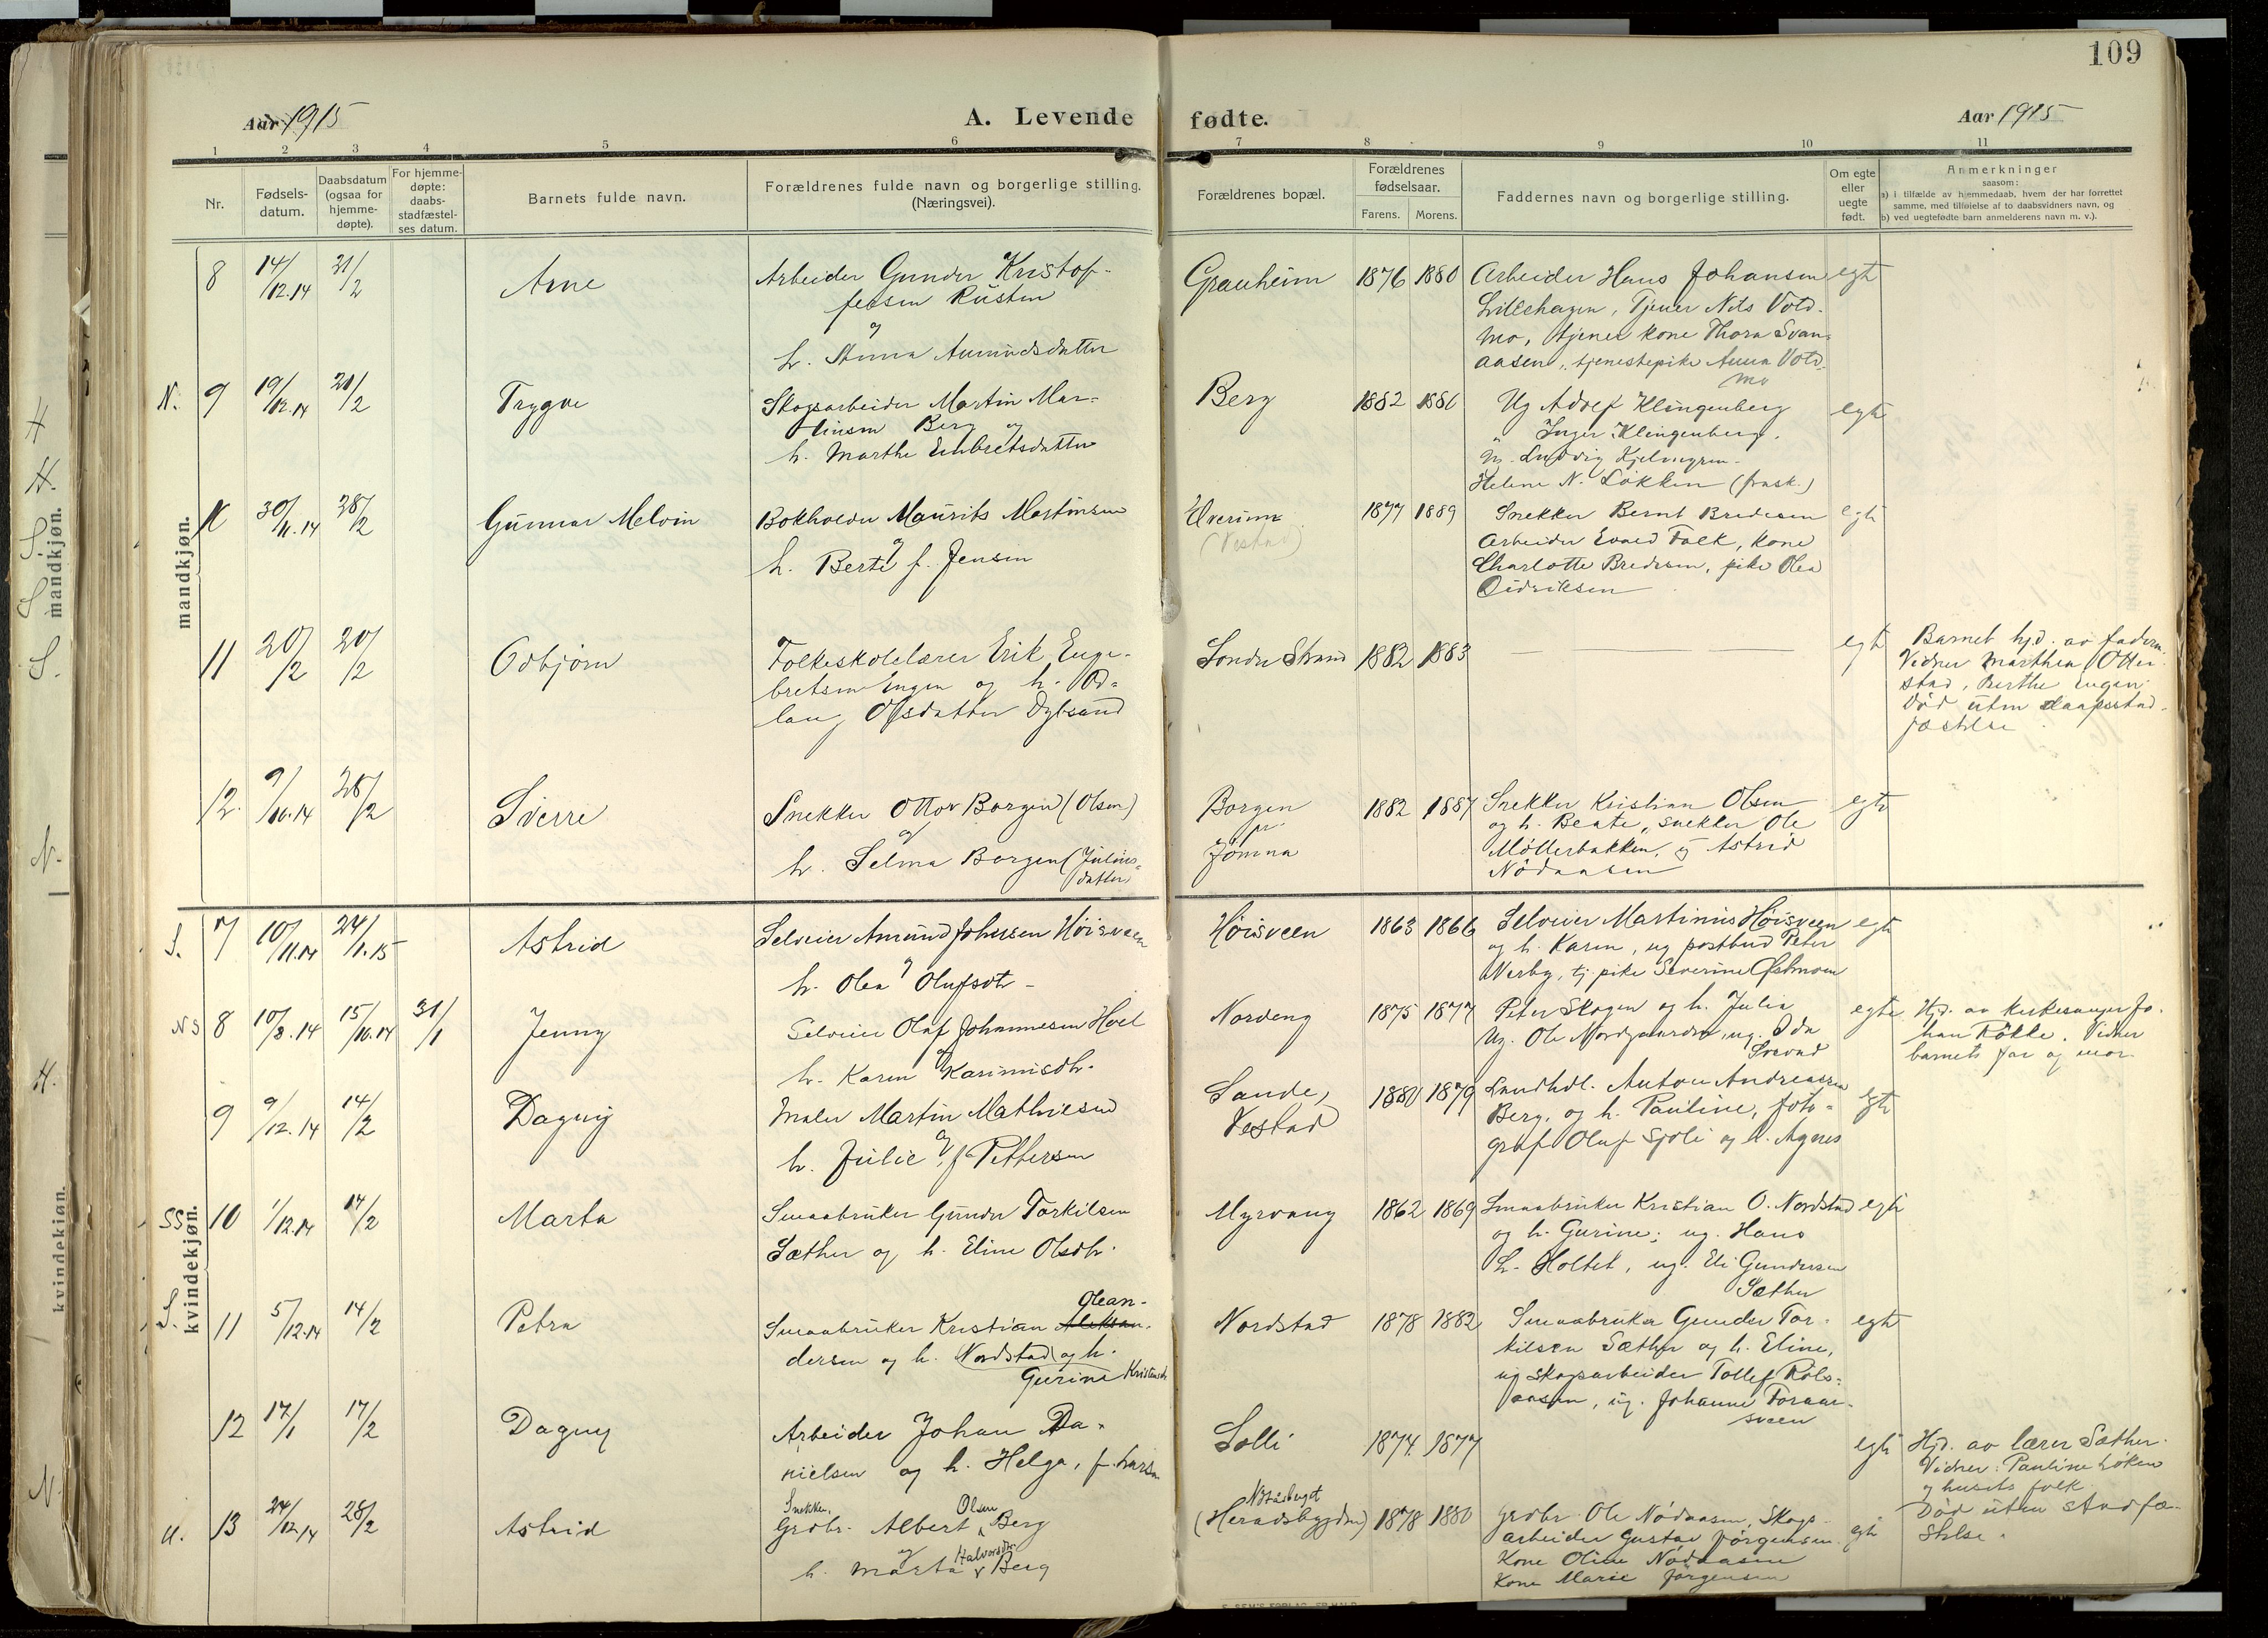 109
Aar 1915
A. Levende fødte.
Aar 1915
1 2 3 4 5 6 7 8 9 10 11
Nr.
Fødsels-
datum.
Daabsdatum
(ogsaa for
hjemme-
døpte).
For hjemme-
døpte:
daabs-
stadfæstel-
ses datum.
Barnets fulde navn.
Forældrenes fulde navn og borgerlige stilling.
(Næringsvei).
Forældrenes bopæl.
Forældrenes
fødselsaar.
Farens. Morens.
Faddernes navn og borgerlige stilling.
Om egte
eller
uegte
født.
Anmerkninger
saasom:
a) i tilfælde av hjemmedaab, hvem der har forrettet
samme, med tilføielse af to daabsvidners navn, og
b) ved uegtefødte barn anmelderens navn m. v.).
mandkjøn.
8 14/12.14 21/2 Arne
Arbeider Gunder Kristof-
fersen Rusten
og
h. Anna Amundsdatter
Grauheim 1876 1880
Arbeider Hans Johansen
Lillehagen, Tjener Nils Vold-
mo, tjener kone Thora Svan-
aasen, tjenestepike Anna Vold-
mo
egte
N. 9 19/12.14 21/2 Trygve
Skogsarbeider Martin Mar-
tinsen Berg og
h. Marthe Embretsdatter
Berg 1882 1886
Ug Adolf Klingenberg
Inger Klingenberg.
Ludvig Kjelmgren
Helene N. Løkken (frask.)
egte
30/11.14 28/2 Gunnar Melvin
Bokholder Maurits Martinsen
og
h. Berte f. Jensen
Elverum
(Vestad)
1877 1889
Snekker Bernt Bredesen
Arbeider Evald Falk, kone
Charlotte Bredesen, pike Olea
Didriksen
egte
11 20/2 20/2 Odbjørn
Folkeskolelærer Erik Enge-
bretsen Engen og h. Od-
laug Olsdatter Dybsand
Søndre Strand 1882 1883
egte
Barnet hjd. av faderen.
Vidner Marthea Otter-
stad, Berthe Engen.
Død uten daapsstad-
fæstelse
12. 9/10.14 28/2 Sverre
Snekker Ottar Borgen (Olsen)
og
h. Selma Borgen (Julius-
datter)
Borgen
pr.
Jømna
1882 1887
Snekker Kristian Olsen
og h. Beate, snekker Ole
Møllerbakken, og Astrid
Nødaasen
egte
kvindekjøn.
S. 7 10/11.14 24/1.15 Astrid
Selveier Amund Johnsen Høisveen
og
h. Olea Olufsdtr
Høisveen 1863 1866
Selveier Martinius Høisveen
og h. Karen, ug postbud Peter
Werby, tj. pike Severine Østmoen
egte
NS 8 10/8.14 15/10.14 31/1 Jenny
Selveier Olaf Johannesen Hoel
og
h. Karen Karinusdtr.
Nordeng 1875 1877
Peter Skogen og h. Julia
Ug. Ole Nordgaarden, ug. Oda
egte
Hjd. av kirkesanger Jo-
han Løkke. Vidner
barnets far og mor.
9 9/12.14 14/2 Dagny
Maler Martin Mathiesen
og
h. Julie, f. Pettersen
Sande,
Vestad
1880 1879
Landhdl. Anton Andreassen
Berg, og h. Pauline, foto-
graf Oluf Sjøli og h. Agnes
egte
SS 10 1/12.14 14/2 Marta
Smaabruker Gunder Torkilsen
Sæther og h. Eline Olsdtr.
Myrvang 1862 1869
Smaabruker Kristian O. Nordstad
og h. Gurine; ug. Hans
L. Holtet, ug. Eli Gundersen
Sæther
egte
S. 11 5/12.14 14/2 Petra
Olean-
Smaabruker Kristian Aleksan-
dersen og h. Nordstad og h.
Gurine Kristensdtr
Nordstad 1878 1882
Smaabruker Gunder Tor-
kilsen Sæther og h. Eline,
ug skogsarbeider Tollef Rols-
aasen, ug. Johanne Foraar-
sveen
egte
12 17/1 17/2 Dagny
Arbeider Johan Da-
nielsen og h. Helga, f. Larsen
Solli 1874 1877
egte
Hjd. av lærer Sæther.
Vidner: Pauline Løken
og husets folk
Død uten stadfæ-
stelse.
13 24/12.14 28/2 Astrid
Snekker,
Grdbr. Albert Olsen Berg
og
h. Marta Halvorsdtr. Berg
(Heradsbygden) 1878 1880
Grdbr Ole Nødaasen, Skogs-
arbeider Gustav Jørgensen
Kone Oline Nødaasen
Kone Marie Jørgensen
egte